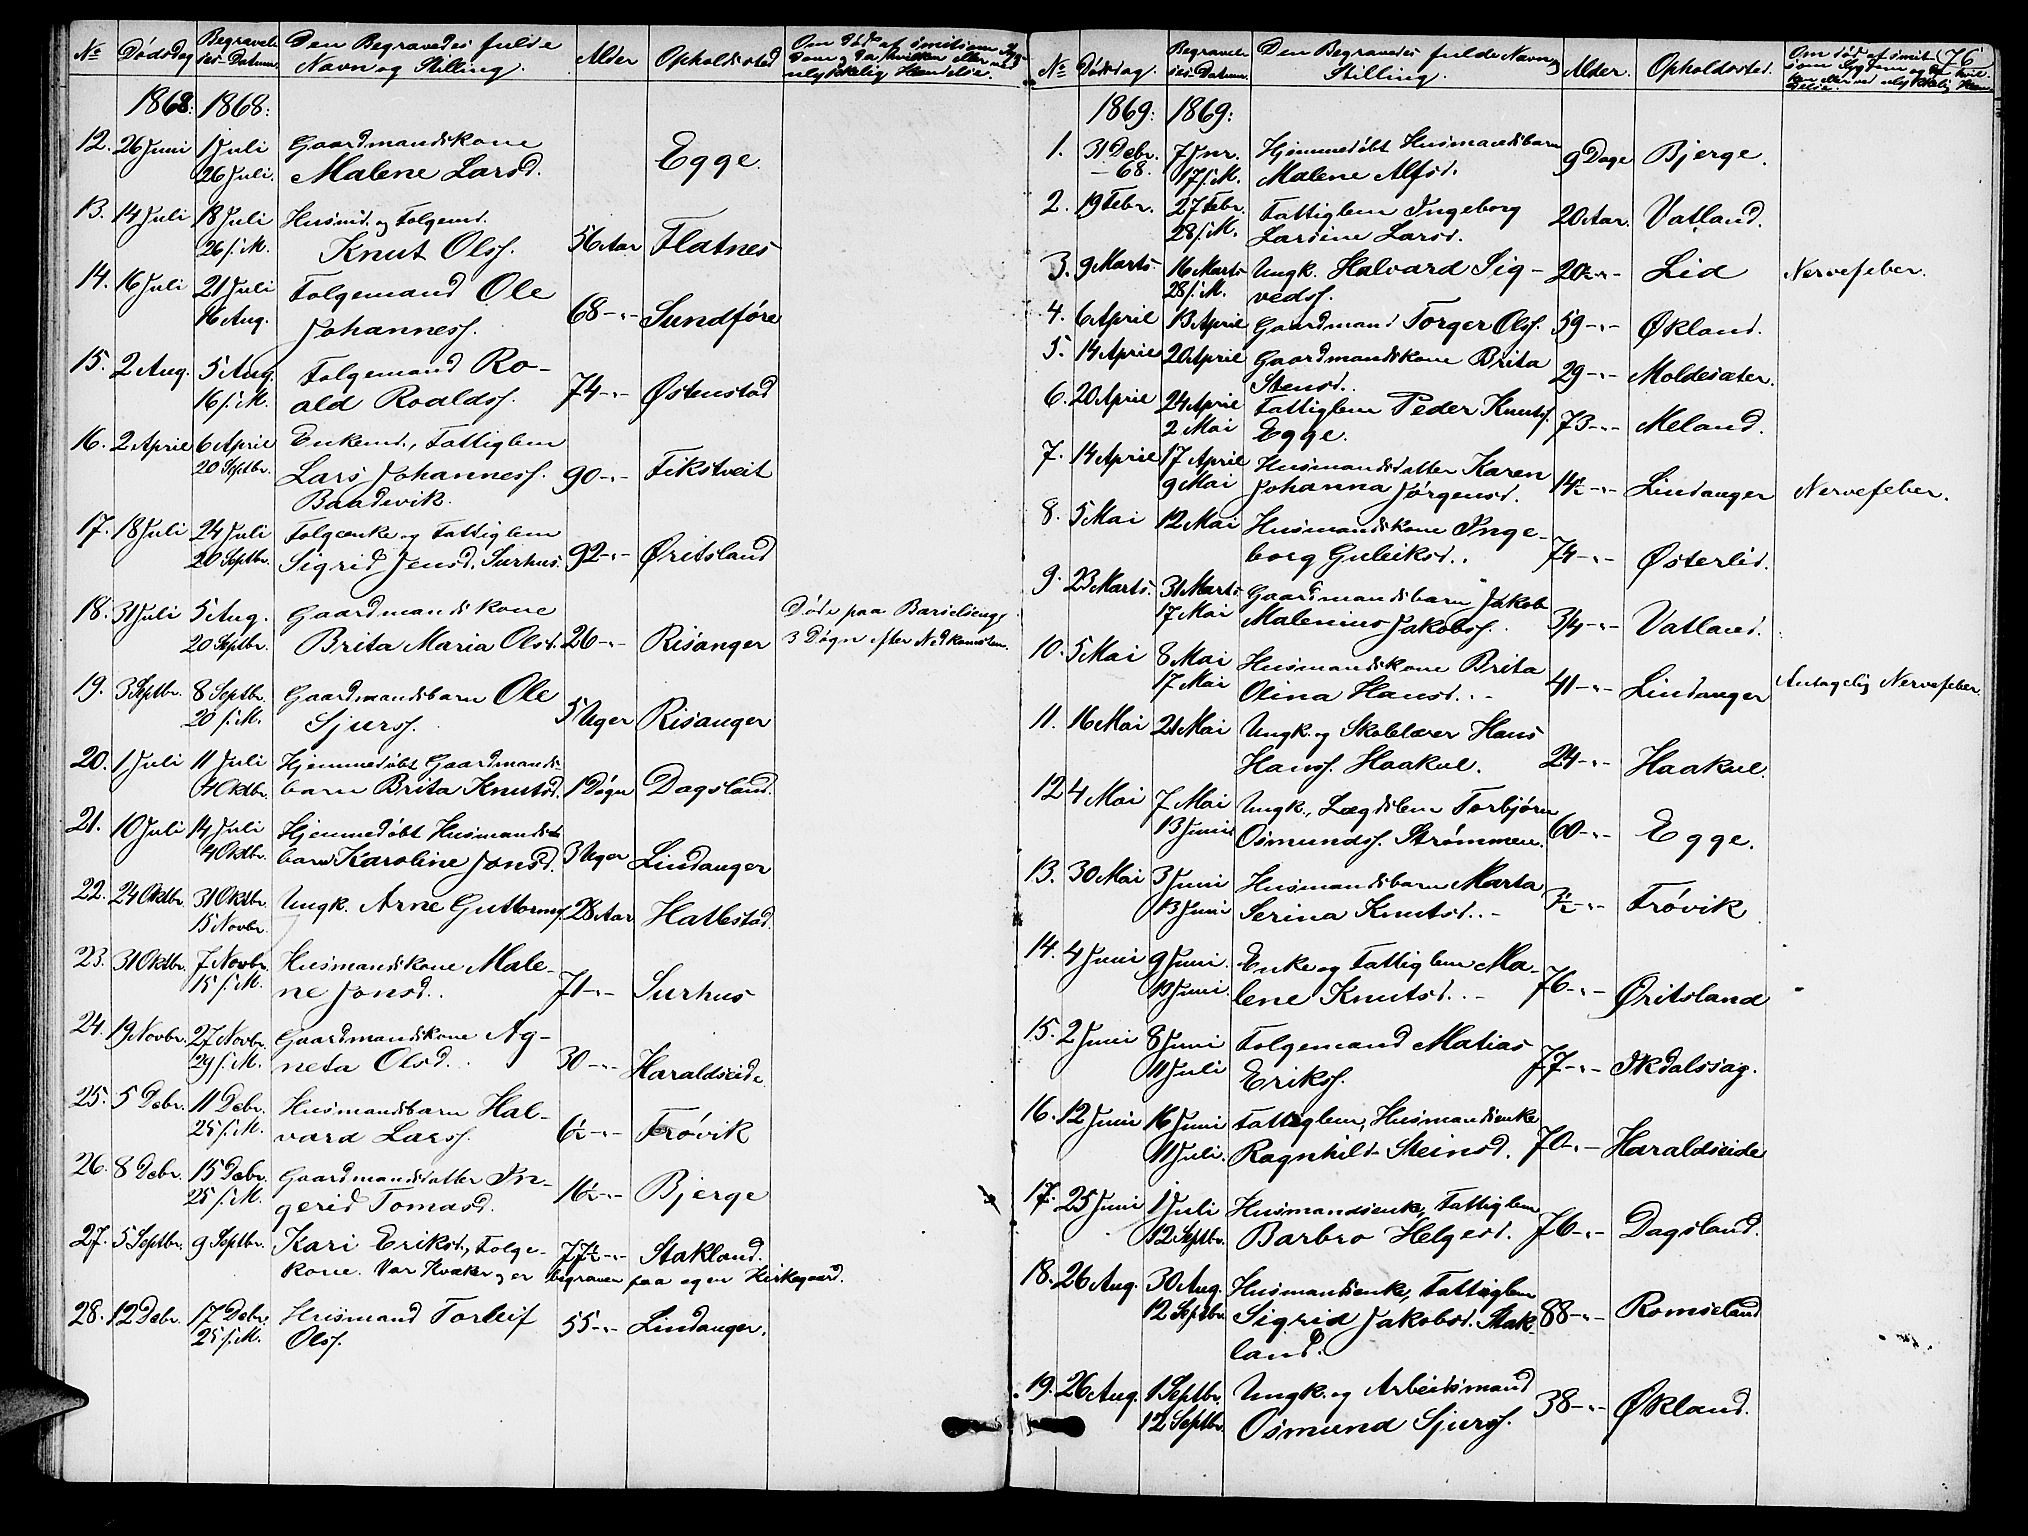 No Dødsdag Begravel- Den Begravedes fulde Alder Opholdssted Om død af smitsom Syg-
ses-Datum. Navn og Stilling. dom, da hvilken eller ved
ulykkelig Hændelse.
1868: 1868:
12. 26 Juni 1 Juli Gaardmandskone Egge.
26 Juli. Malene Larsd.
13. 14 Juli 18 Juli Husmd. og Folgemd.
26 s. M. Knut Olss. 56 Aar Flatnes
14. 16 Juli 21 Juli Folgemand Ole
16 Aug. Johanness. 68 -"- Sundføre
15. 2 Aug. 5 Aug. Folgemand Ro-
16 s. M. ald Roalds. 74 -"- Østenstad
16. 2 April 6 April Enkemd., Fattiglem
20 Septbr. Lars Johanness. 90 -"- Fikstveit
Baadsvik.
17. 18 Juli 24 Juli Folgeenke og Fattiglem
20 Septbr. Sigrid Jensd. Surhus. 92 -"- Øritsland
18. 31 Juli 5 Aug. Gaardmandskone Døde paa Barselseng,
20 Septbr. Brita Maria Olsd. 26 -"- Risanger 3 Døgn efter Nedkomsten.
19. 3 Septbr. 8 Septbr. Gaardmandsbarn Ole
20 s. M. Sjurss. 5 Uger Risanger
20. 1 Juli 11 Juli Hjemmedøbt Gaardmands-
4 Oktbr. barn Brita Knutsd. 1 Døgn Dagsland.
21. 10 Juli 14 Juli Hjemmedøbt Husmands-
4 Oktbr. barn Karoline Jonsd. 3 Uger Lindanger
22. 24 Oktbr. 31 Oktbr. Ungk. Arne Guttorms. 28 Aar Hatlestad.
15 Novbr.
23. 31 Oktbr. 7 Novbr. Husmandskone Male-
15 s. M. ne Jonsd. 71 -"- Surhus
24. 19 Novbr. 27 Novbr. Gaardmandskone Ag-
29 s. M. neta Olsd. 30 -"- Haraldseide.
25. 5 Debr. 11 Debr. Husmandsbarn Hal-
25 s. M. vard Larss. 6½ -"- Frøvik
26. 8 Debr. 15 Debr. Gaardmandsdatter In-
25 s. M. gerid Tomasd. 16½ -"- Bjerge
27. 5 Septbr. 9 Septbr. Kari Eriksd., Folge- 77½ -"- Stakland.
kone. Var Kvæker og er begraven paa egen Kirkegaard.
28. 12 Debr. 17 Debr. Husmand Torleif 55 -"- Lindanger.
25 s. M. Olss.
76
No Dødsdag. Begravel- Den Begravedes fulde Navn og Alder. Opholdssted. Om død af smit-
ses-Datum. Stilling. som Sygdom og af hvil-
ken eller ved ulykkelig Hæn-
delse.
1869: 1869:
1. 31 Debr. 7 Jnr. Hjemmedøbt Husmandsbarn 9 Dage Bjerge.
- 68. 17 s. M. Malene Alfsd.
2. 19 Febr. 27 Febr. Fattiglem Ingeborg 20 Aar. Vatland.
28 s. M. Larsine Larsd.
3. 9 Marts. 16 Marts Ungk. Halvard Sig- 20½ -"- Lid Nervefeber.
28 s. M. vedss.
4. 6 April 13 April Gaardmand Torger Olss. 59 -"- Økland.
5. 14 April 20 April Gaardmandskone Brita
Stensd. 29 -"- Moldesæter.
6. 20 April 24 April Fattiglem Peder Knuts. 73 -"- Meland.
2 Mai Egge.
7. 14 April 17 April Husmandsdatter Karen
9 Mai Johanna Jørgensd. 14½ -"- Lindanger Nervefeber.
8. 5 Mai 12 Mai Husmandskone Inge-
borg Guleiksd. 74 -"- Østerlid.
9. 23 Marts. 31 Marts Gaardmandsbarn Jakob
17 Mai Malenius Jakobss. 3/4 -"- Vatland.
10. 5 Mai 8 Mai Husmandskone Brita
17 Mai Olina Hansd. 41 -"- Lindanger Antagelig Nervefeber.
11. 16 Mai 21 Mai Ungk. og Skolelærer Hans
Hanss. Haakul. 24 -"- Haakul.
12 4 Mai 7 Mai Ungk., Lægdslem Torbjørn
13 Juni Osmundss. Strømmen. 60 -"- Egge.
13. 30 Mai 3 Juni Husmandsbarn Marta
13 Juni Serina Knutsd. ½ -"- Frøvik
14. 4 Juni 9 Juni. Enke og Fattiglem Ma-
13 Juni. lene Knutsd. 76 -"- Øritsland
15. 2 Juni 8 Juni Folgemand Matias
11 Juli Erikss. 77 -"- Ikdalssag.
16. 12 Juni 16 Juni Fattiglem, Husmandsenke
11 Juli. Ragnhild Steinsd. 70 -"- Haraldseide
17. 25 Juni 1 Juli Husmandsenke, Fattiglem
12 Septbr. Barbro Helgesd. 76 -"- Dagsland.
18. 26 Aug. 30 Aug. Husmandsenke, Fattiglem
12 Septbr. Sigrid Jakobsd. Stak- 88 -"- Romseland
land.
19. 26 Aug. 1 Septbr. Ungk. og Arbeidsmand
12 Septbr. Osmund Sjurss. 38 -"- Økland.